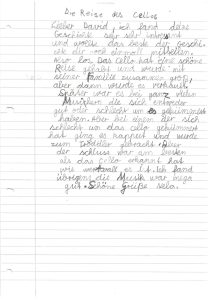 Die Reise des Cellos
Lieber David, ich fand deine
Geschichte sehr sehr
und wollte das beste der Geschi-
chte dir noch einmal mitteilen.
Also los. Das Cello hat eine schöne
Reise gehabt und wurde mit
seiner Familie zusammen groß,
aber dann wurde es verkauft.
Später war es bei ganz vielen
Musikern die sich entweder
gut oder schlecht um es gekümmert
haben. Aber bei einem der sich
schlecht um das Cello gekümmert
hat ging es kaputt und wurde
zum Trödler gebracht. Aber
der schluss war am besten
als das Cello erkannt hat
wie wertvoll es ist. Ich fand
übrigens die Musik war mega
gut. Schöne Grüße